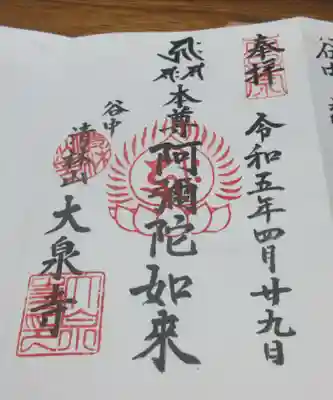 谷中
奉拝
令和五年四月廿九日
本尊阿彌陀如来
谷中
清林山
大泉寺